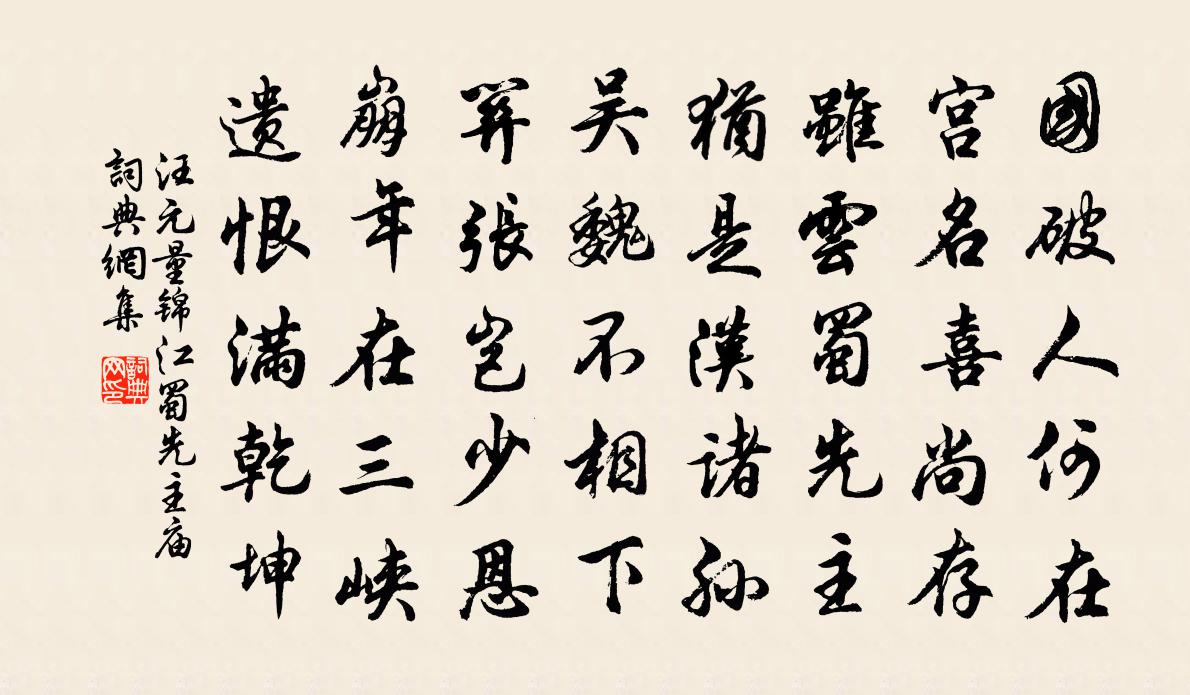 國破人何在
宫名喜尚存
雖雲蜀先主
猶是漢诸孫
吴魏不相下
關張岂少恩
崩年在三峽
遗恨滿乾坤
汪元量锦江蜀先主庙
詞典網集
詞典网印